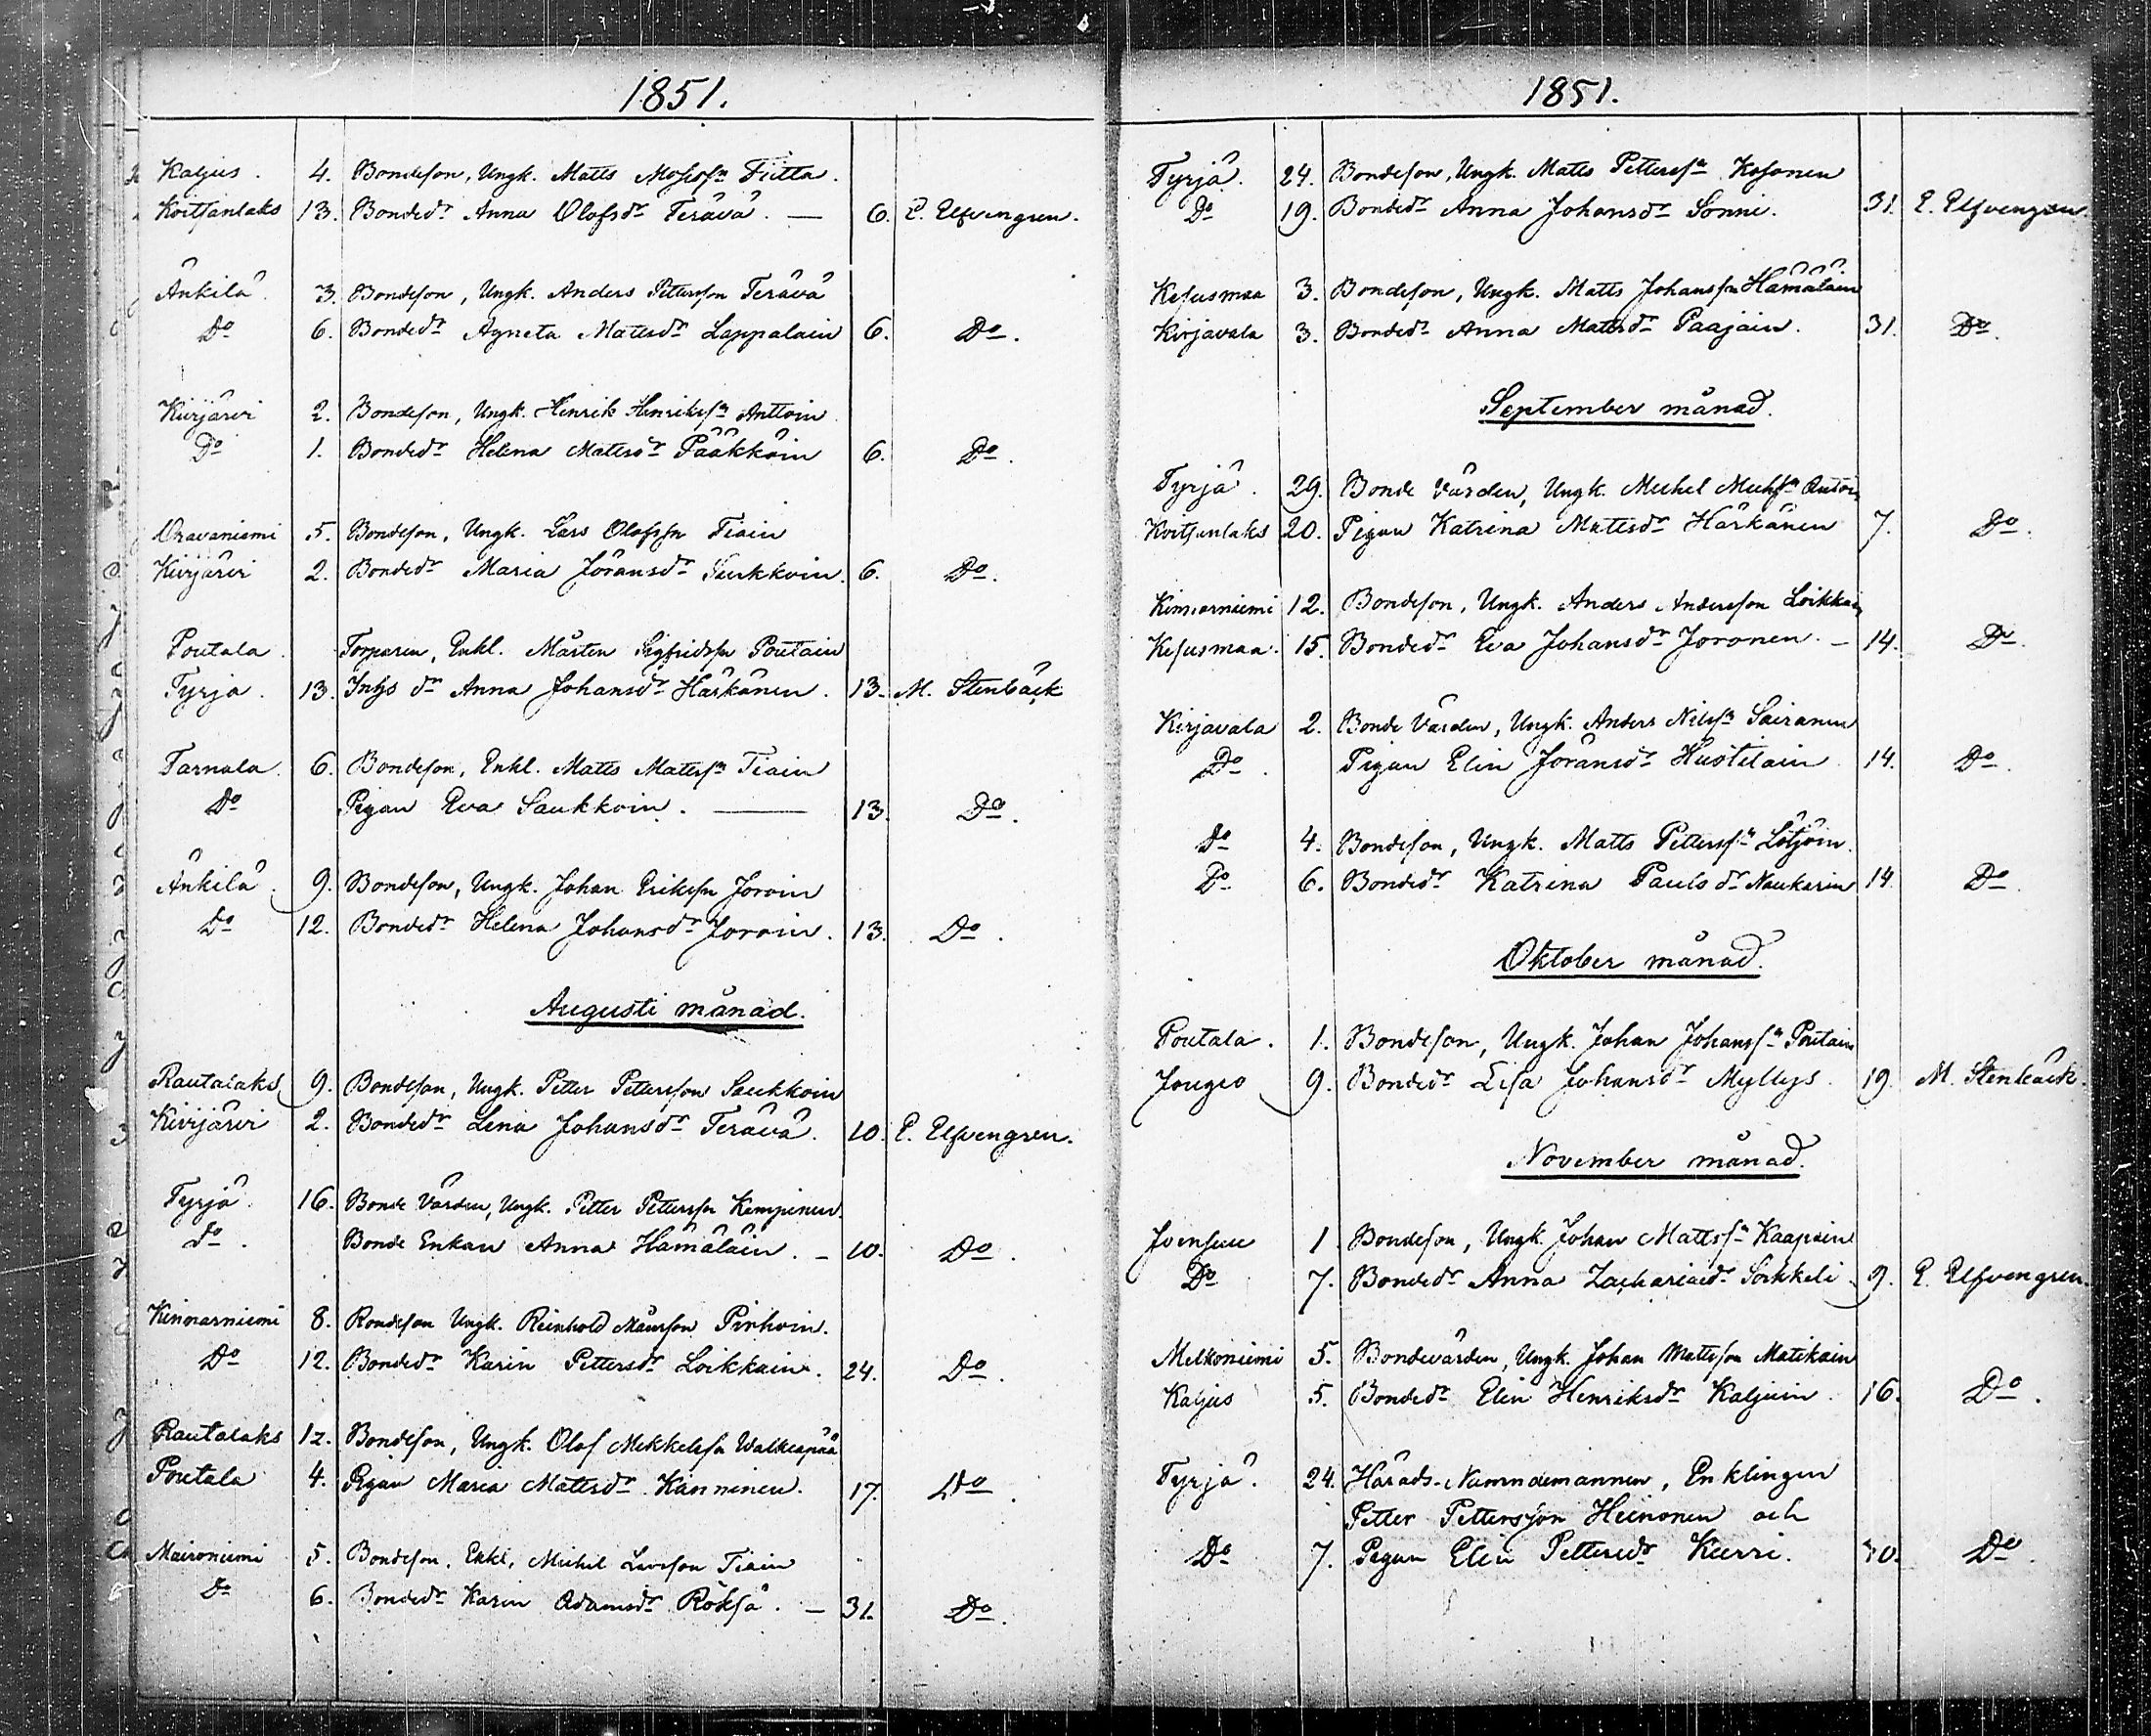 1851.
Kaljus. 4. Bondeson, Ungk. Matts Mosisson Tiitta.
Koitsanlaks 13. Bondedr Anna Olofsdr Terävä. — 6. E. Elfvengren.
Änkilä 3. Bondeson, Ungk. Anders Petersson Terävä
Do 6. Bondedr Agneta Mattsdr Lappalain 6. Do.
Kivijärvi 2. Bondeson, Ungk. Henrik Henrikssn Anttoin
Do 1. Bondedr Helena Mattsdr Pääkköin 6. Do.
Oravaniemi 5. Bondeson, Ungk. Lars Olofssn Tiain
Kivijärvi 2. Bondedr Maria Jöransdr Suikkoin. 6. Do.
Poutala. Torparen, Enkl. Mårten Sigfridssn Poutain
Tyrjä. 13. Inhs dr Anna Johansdr Härkänen. 13. M. Stenbäck
Tarnala. 6. Bondeson, Enkl. Matts Mattssn Tiain
Do Pigan Eva Saukkoin. — 13. Do.
Änkilä. 9. Bondeson, Ungk. Johan Erikssn Joroin
Do 12. Bondedr Helena Johansdr Joroin. 13. Do.
Augusti månad.
Rautalaks 9. Bondeson, Ungk. Petter Pettersson Saukkoin
Kivijärvi 2. Bondedr Lena Johansdr Terävä. 10. E. Elfvengren.
Tyrjä. 16. Bonde Vården, Ungk. Petter Petterssn Kempinen.
Do. Bonde Enkan Anna Hämäläin. — 10. Do.
Kinnarniemi 8. Bondeson Ungk. Reinhold Månsson Pirhoin.
Do 12. Bondedr Karin Pettersdr Loikkain. 24. Do.
Rautalaks 12. Bondeson, Ungk. Olof Mikkelssn Walkeapää
Poutala 4. Pigan Maria Mattsdr Känninen. 17. Do.
Maironiemi 5. Bondeson, Enkl, Michel Larsson Tiain
Do 6. Bondedr Karin Adamsdr Röksä. — 31. Do.
1851.
Tyrjä. 24. Bondeson, Ungk. Matts Petterssn Kosonen
Do 19. Bondedr Anna Johansdr Sonni. 31. E. Elfvengren.
Kesusmaa 3. Bondeson, Ungk. Matts Johanssn Hämäläin
Kirjavala 3. Bondedr Anna Mattsdr Paajain. 31. Do.
September månad.
Tyrjä. 29. Bonde Vården, Ungk. Michel Michssn
Koitsanlaks 20. Pigan Katrina Mattsdr Härkänen 7. Do.
Kinnarniemi 12. Bondeson, Ungk. Anders Andersson Loikkain
Kesusmaa. 15. Bondedr Eva Johansdr Joronen. — 14. Do.
Kirjavala 2. Bonde Vården, Ungk. Anders Nilssn Sairanen
Do. Pigan Elin Jöransdr Hustilain 14. Do.
Do 4. Bondeson, Ungk. Matts Petterssn Lötjöin.
Do. 6. Bondedr Katrina Pauls dr Naukarin 14. Do.
Oktober månad.
Poutala. 1. Bondeson, Ungk. Johan Johanssn Poutain
Jougio 9. Bondedr Lisa Johansdr Myllys. 19. M. Stenbäck.
November månad.
Joensuu 1. Bondeson, Ungk. Johan Mattssn Kaapoin
Do 7. Bondedr Anna Zachariaedr Sorkkeli. 9. E. Elfvengren.
Melkoniemi 5. Bondevården, Ungk. Johan Mattsson Matikain
Kaljus 5. Bondedr Elin Henriksdr Kaljuin. 16. Do.
Tyrjä. 24. Härads-Nämndemannen, Enklingen
Petter Pettersson Heinonen och
Do 7. Pigan Elin Pettersdr Kurri. 30. Do.